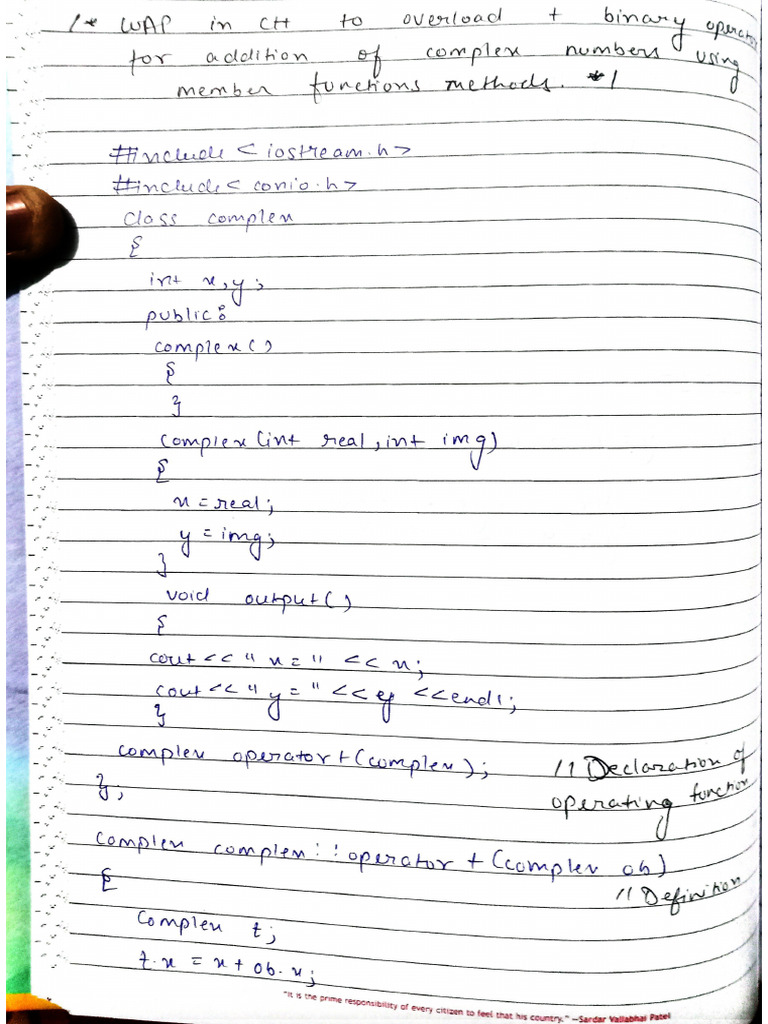 /* WAP in C++ to overload + binary operator
for addition of complex numbers using
member functions methods. */
#include < iostream.h>
#include < conio.h>
class complex
{
int x,y;
public:
complex()
{
}
complex(int real, int img)
{
x = real;
y = img;
}
void output()
{
cout << " x = " << x;
cout << " y = " << y << endl;
}
complex operator+(complex); // Declaration of
}; operating function
complex complex::operator + (complex ob)
{ // Definition
complex t;
t.x = x + ob.x;
"It is the prime responsibility of every citizen to feel that his country." —Sardar Vallabhai Patel